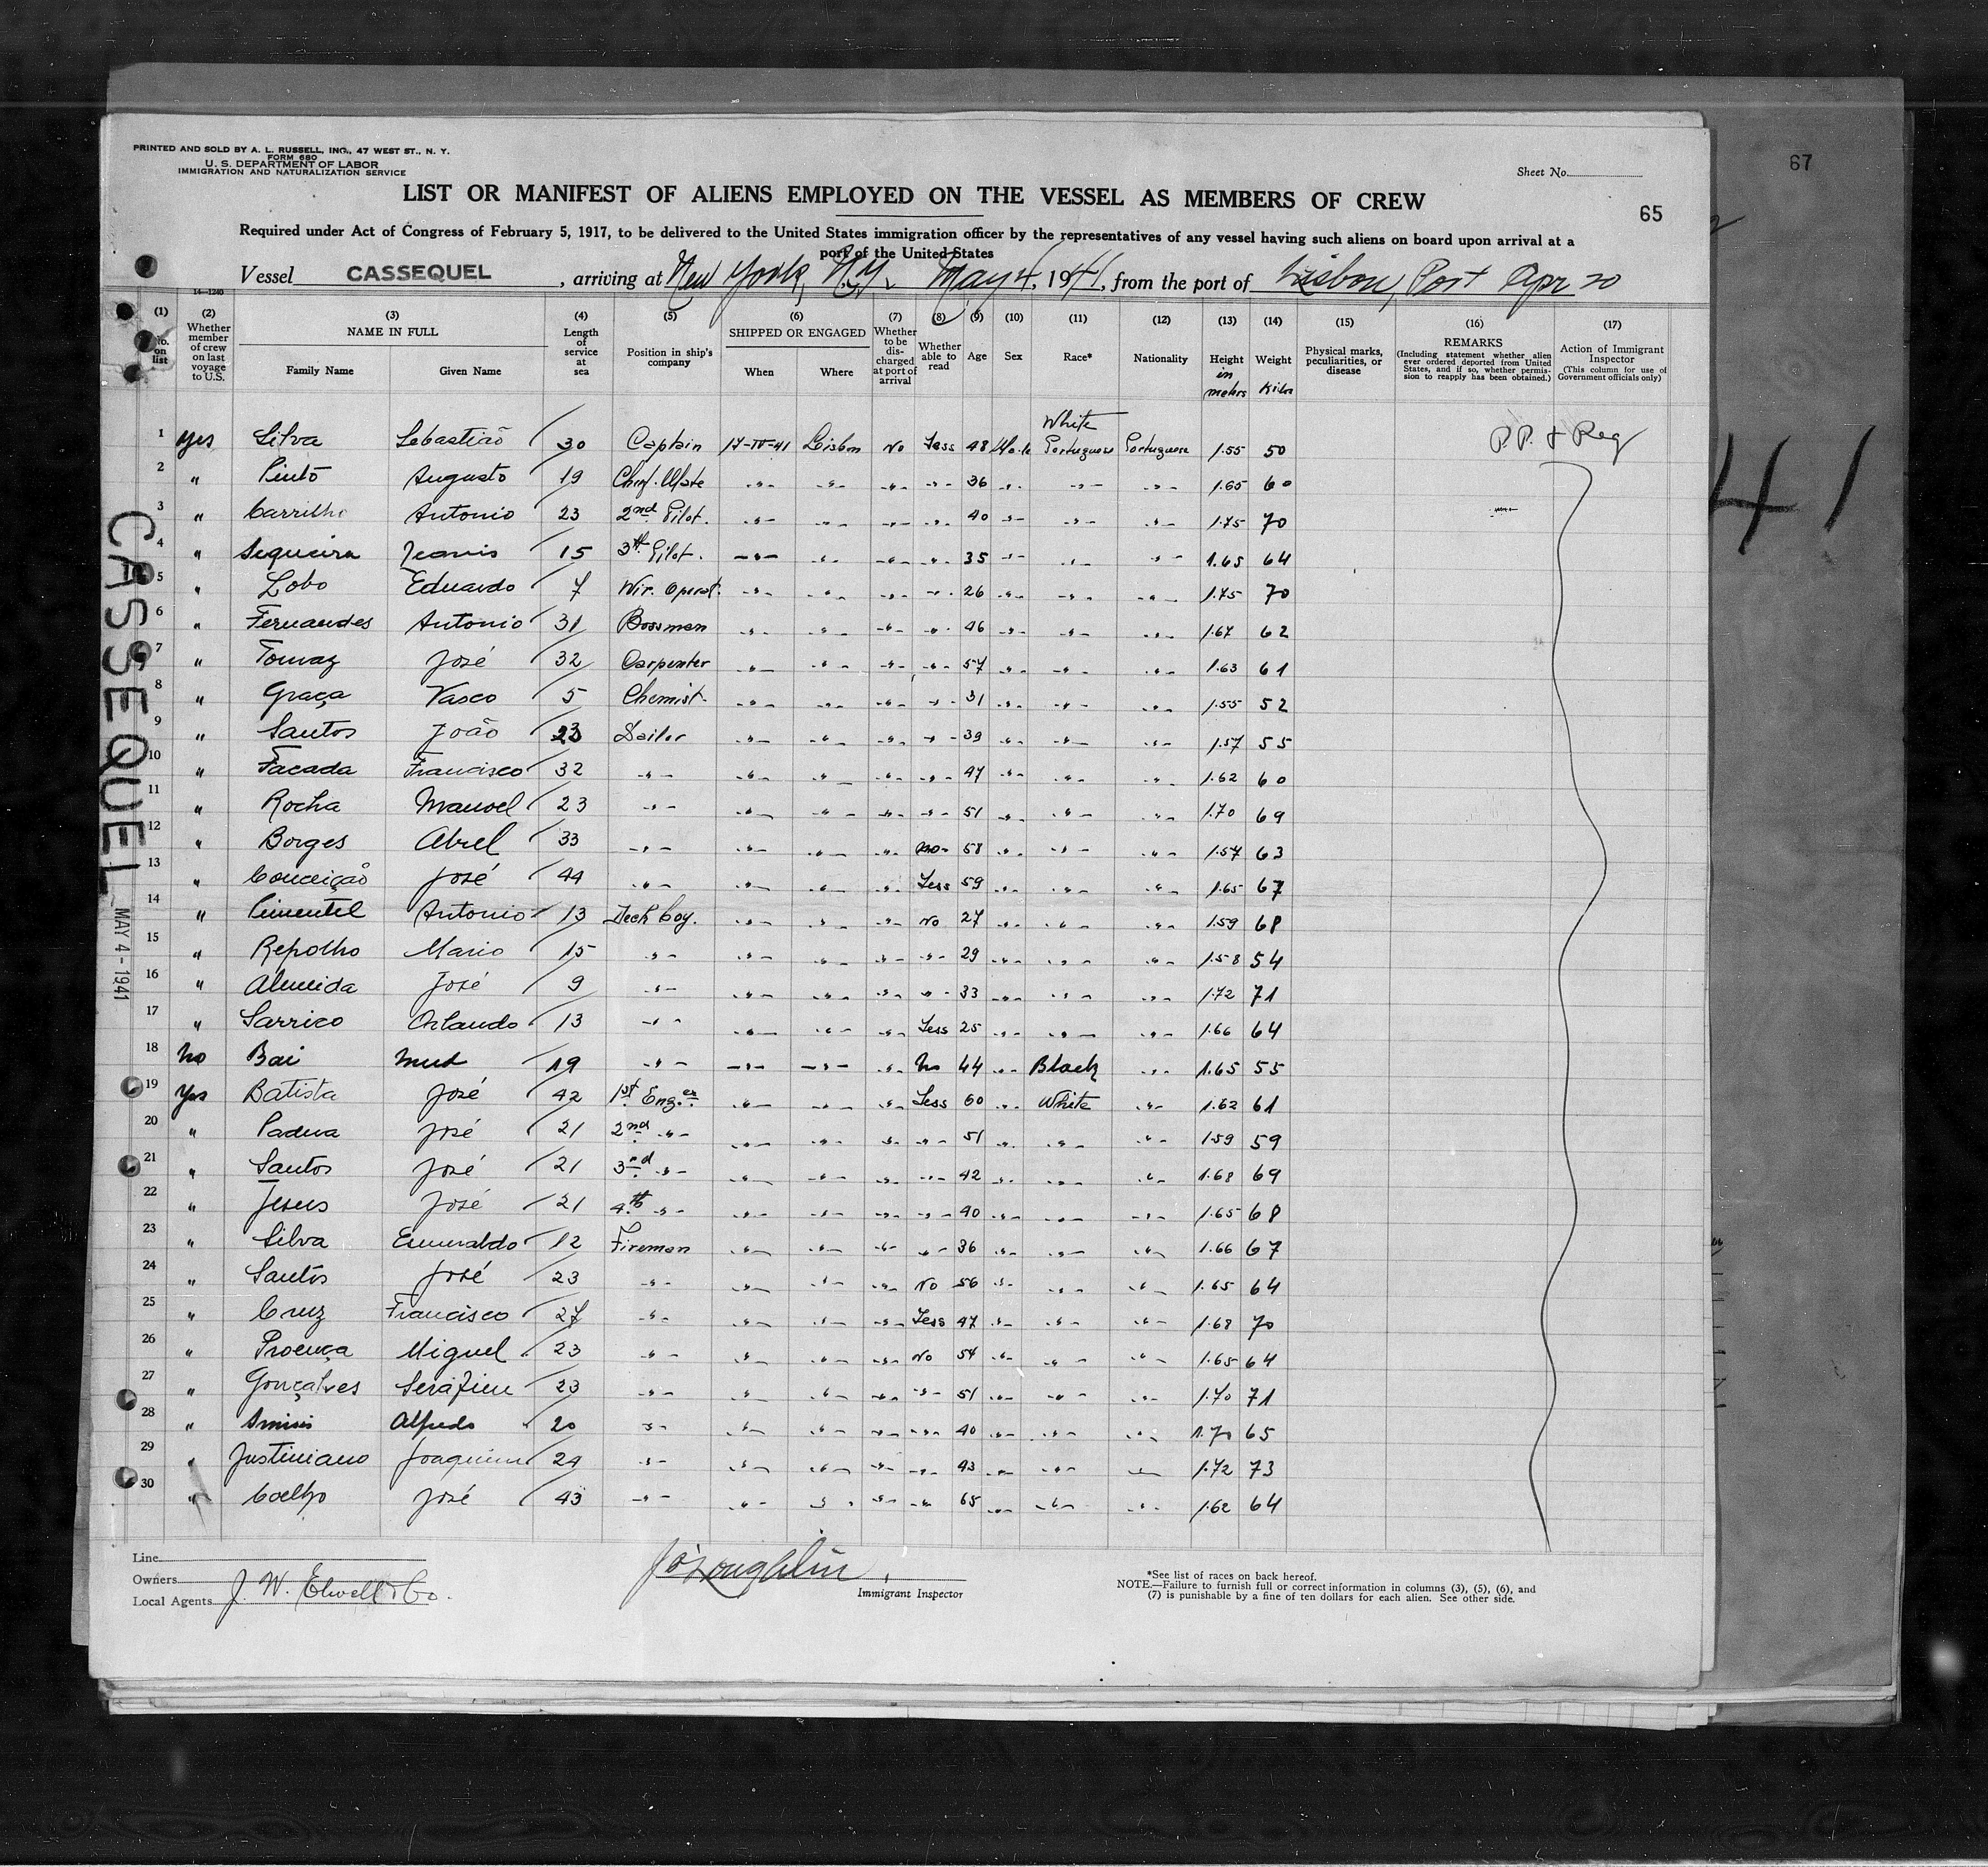 67
PRINTED AND SOLD BY A. L. RUSSELL, INC., 47 WEST ST., N. Y.
FORM 680
U. S. DEPARTMENT OF LABOR
IMMIGRATION AND NATURALIZATION SERVICE
Sheet No.
LIST OR MANIFEST OF ALIENS EMPLOYED ON THE VESSEL AS MEMBERS OF CREW
65
Required under Act of Congress of February 5, 1917, to be delivered to the United States immigration officer by the representatives of any vessel having such aliens on board upon arrival at a
port of the United States
Vessel CASSEQUEL, arriving at New York, N.Y. May 4, 1941, from the port of Lisbon, Port Apr 20
14—1240
(1) No. on list (2) Whether member of crew on last voyage to U.S. (3) NAME IN FULL Family Name Given Name (4) Length of service at sea (5) Position in ship's company (6) SHIPPED OR ENGAGED When Where (7) Whether to be discharged at port of arrival (8) Whether able to read (9) Age (10) Sex (11) Race* (12) Nationality (13) Height in meters (14) Weight Kilos (15) Physical marks, peculiarities, or disease (16) REMARKS (Including statement whether alien ever ordered deported from United States, and if so, whether permission to reapply has been obtained.) (17) Action of Immigrant Inspector (This column for use of Government officials only)
White
1 Yes Silva Sebastião 30 Captain 17-IV-41 Lisbon No Yess 48 Male Portuguese Portuguese 1.55 50 P.P. & Reg
2 " Pinto Augusto 19 Chief Mate -"- -"- -"- -"- 36 -"- -"- -"- 1.65 60
3 " Carrilho Antonio 23 2nd Pilot. -"- -"- -"- -"- 40 -"- -"- -"- 1.75 70
4 " Sequeira 15 3th Pilot. -"- -"- -"- -"- 35 -"- -"- -"- 1.65 64
5 " Lobo Eduardo 7 Wir. Operat. -"- -"- -"- -"- 26 -"- -"- -"- 1.75 70
6 " Fernandes Antonio 31 Bossman -"- -"- -"- -"- 46 -"- -"- -"- 1.67 62
7 " Tomaz José 32 Carpenter -"- -"- -"- -"- 57 -"- -"- -"- 1.63 61
8 " Graça Vasco 5 Chemist. -"- -"- -"- -"- 31 -"- -"- -"- 1.55 52
9 " Santos João 23 Sailor -"- -"- -"- -"- 39 -"- -"- -"- 1.57 55
10 " Facada Francisco 32 -"- -"- -"- -"- -"- 47 -"- -"- -"- 1.62 60
11 " Rocha Manoel 23 -"- -"- -"- -"- -"- 51 -"- -"- -"- 1.70 69
12 " Borges Abel 33 -"- -"- -"- -"- no 58 -"- -"- -"- 1.57 63
13 " Conceição José 44 -"- -"- -"- -"- Yess 59 -"- -"- -"- 1.65 67
14 " Pimentel Antonio 13 Deck boy. -"- -"- -"- No 27 -"- -"- -"- 1.59 68
15 " Repolho Mario 15 -"- -"- -"- -"- -"- 29 -"- -"- -"- 1.58 54
16 " Almeida José 9 -"- -"- -"- -"- -"- 33 -"- -"- -"- 1.72 71
17 " Sarrico Orlando 13 -"- -"- -"- -"- Yess 25 -"- -"- -"- 1.66 64
18 No Bai 19 -"- -"- -"- -"- No 44 -"- Black -"- 1.65 55
19 Yes Batista José 42 1st Enger. -"- -"- -"- Yess 60 -"- White -"- 1.62 61
20 " Padua José 21 2nd -"- -"- -"- -"- -"- 51 -"- -"- -"- 1.59 59
21 " Santos José 21 3rd -"- -"- -"- -"- -"- 42 -"- -"- -"- 1.68 69
22 " Jesus José 21 4th -"- -"- -"- -"- -"- 40 -"- -"- -"- 1.65 68
23 " Silva Esmeraldo 12 Fireman -"- -"- -"- -"- 36 -"- -"- -"- 1.66 67
24 " Santos José 23 -"- -"- -"- -"- No 56 -"- -"- -"- 1.65 64
25 " Cruz Francisco 27 -"- -"- -"- -"- Yess 47 -"- -"- -"- 1.68 70
26 " Proença Miguel 23 -"- -"- -"- -"- No 54 -"- -"- -"- 1.65 64
27 " Gonçalves Serafim 23 -"- -"- -"- -"- -"- 51 -"- -"- -"- 1.70 71
28 " Alfredo 20 -"- -"- -"- -"- -"- 40 -"- -"- -"- 1.70 65
29 " Justiniano Joaquim 24 -"- -"- -"- -"- -"- 43 -"- -"- -"- 1.72 73
30 " Coelho José 43 -"- -"- -"- -"- -"- 65 -"- -"- -"- 1.62 64
CASSEQUEL
MAY 4 - 1941
41
Line
Owners
Local Agents J. W. Elwell & Co.
J O'Loughlin, Immigrant Inspector
*See list of races on back hereof.
NOTE.—Failure to furnish full or correct information in columns (3), (5), (6), and
(7) is punishable by a fine of ten dollars for each alien. See other side.